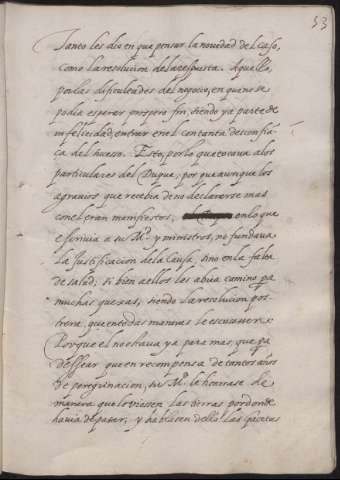 53
Tanto les dio en que pensar la novedad del caso,
como la resolucion de la respuesta. Aquello,
por las dificultades del negocio, en que no se
podia esperar prospero fin, siendo ya parte de
infelicidad, entrar en el con tanta desconfiã-
ça del sucesso. Esto, por lo que tocava a los
particulares del Duque; por que aunque los
agravios que recebia de no declararse mas
con el eran manifiestos, en lo que
escrivia a su M.d y ministros, no fundava
la Justificacion de la Causa, sino en la falta
de salud; si bien a ellos les abria camino pa
muchas quexas; siendo la resolucion pos-
trera, que en todas maneras le escusassen:
Porque el no estava ya para mas, que pa
dessear, que en recompensa de tantos años
de peregrinacion, su M.d le honrase de
manera que lo viessen las tierras por donde
havia de pasar; y hablasen dello las Gazetas